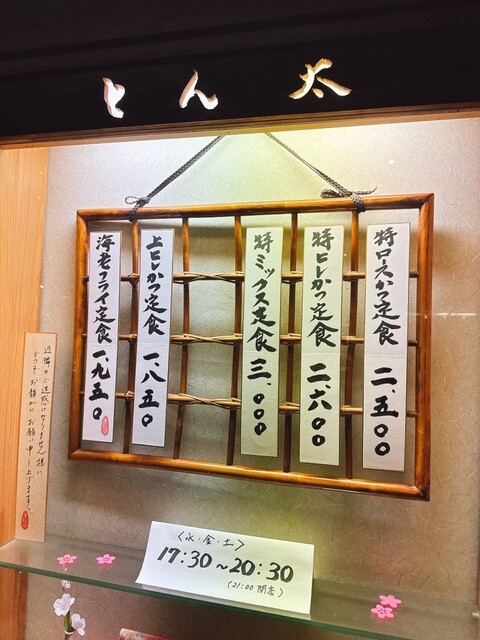 とん太
特ロースかつ定食 二、五〇〇
特ヒレかつ定食 二、六〇〇
特ミックス定食 三、〇〇〇
上ヒレかつ定食 一、八五〇
海老フライ定食 一、九五〇
近隣のご迷惑になりません様に
どうぞ、お静かに お願い申し上げます。
<水・金・土>
17:30~20:30
(21:00 閉店)